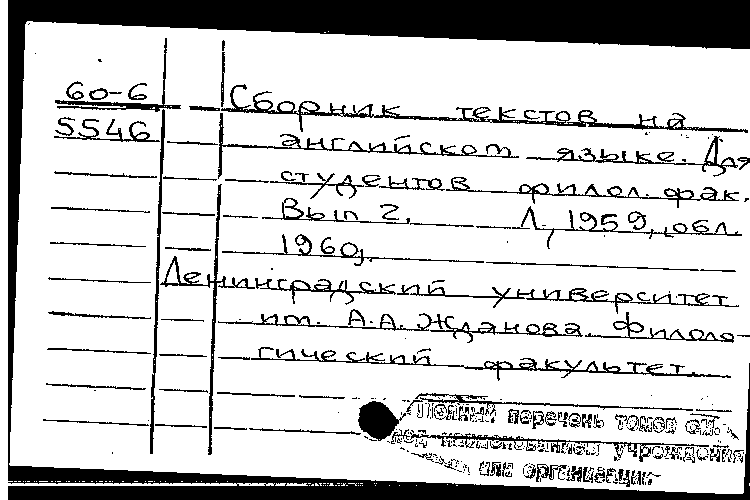 60-6
5546
Сборник текстов на
английском языке. Для
студентов филол. фак.
Вып 2. Л, 1959, обл.
1960г.
Ленинградский университет
им. А.А. Жданова. Филоло-
гический факультет.
Полный перечень томов см.
под наименованием учреждения
или организации